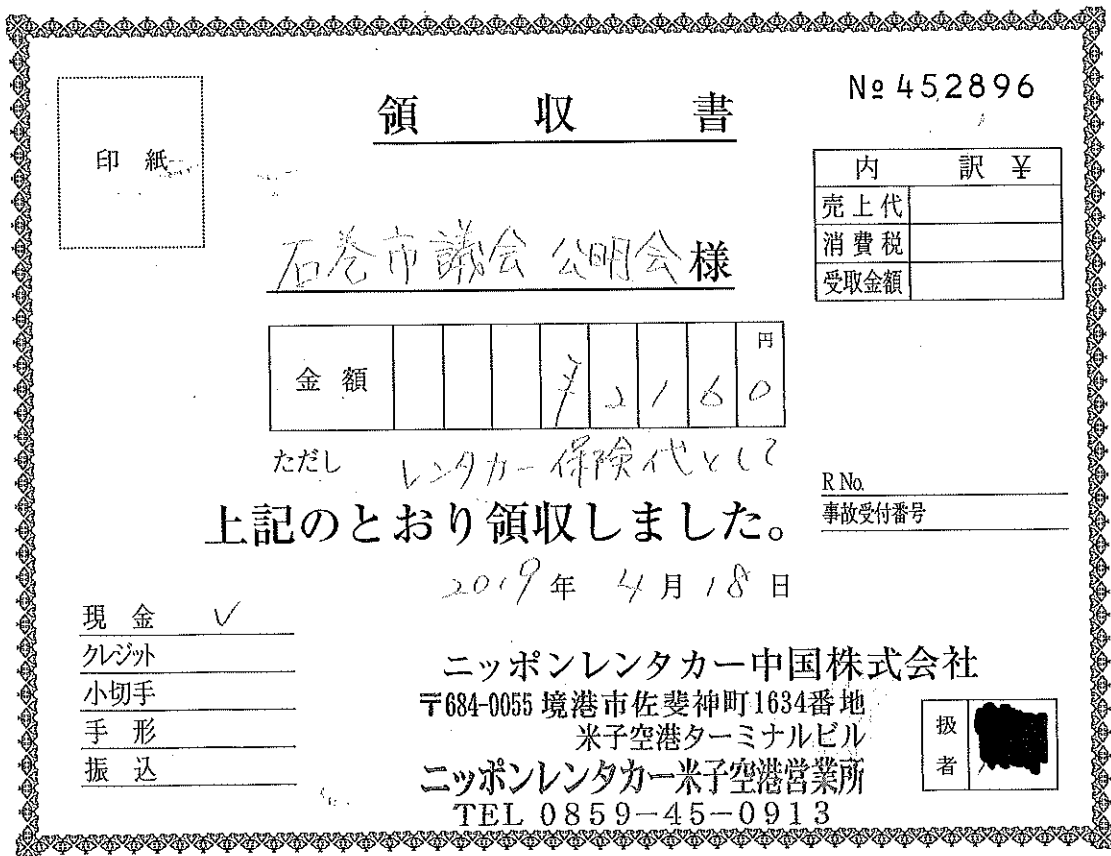 № 452896
領収書
印紙
内訳 ¥
売上代
消費税
受取金額
石巻市議会 公明会 様
金額 ¥2160円
ただし レンタカー保険代として
上記のとおり領収しました。
R No.
事故受付番号
2019年 4月 18日
現金 ✓
クレジット
小切手
手形
振込
ニッポンレンタカー中国株式会社
〒684-0055 境港市佐斐神町1634番地
米子空港ターミナルビル
ニッポンレンタカー米子空港営業所
TEL 0859-45-0913
扱者